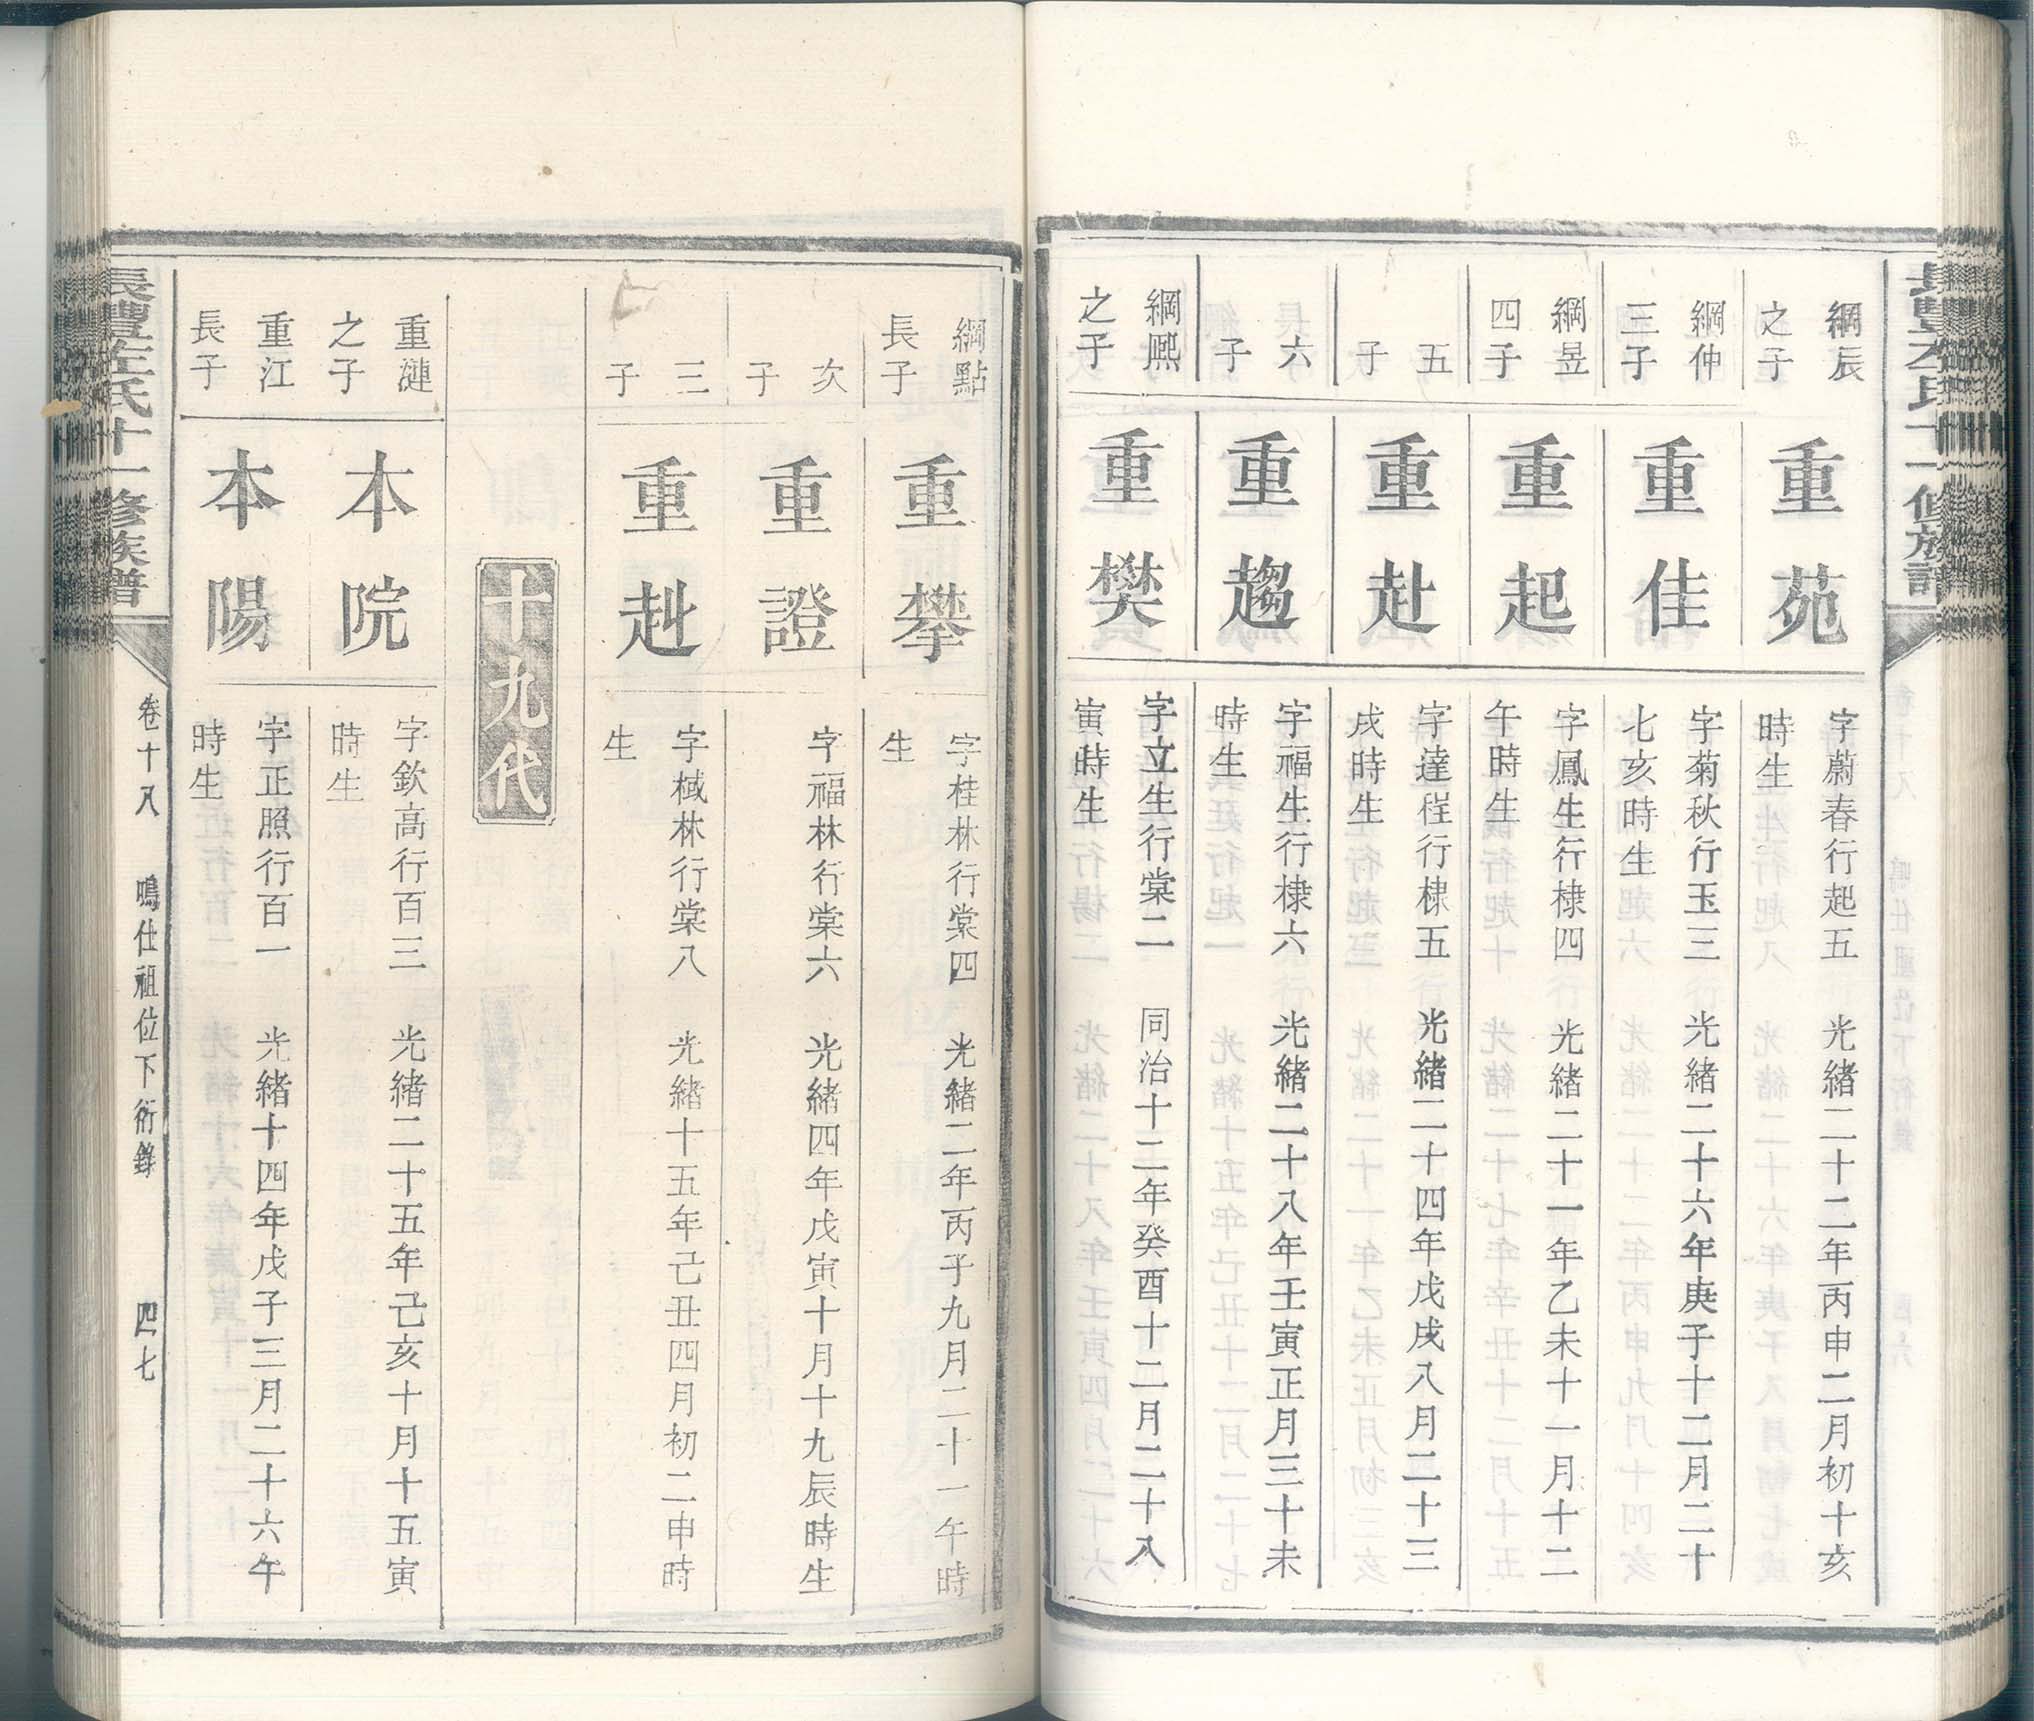 綱辰
之子
重苑
字蔚春行起五 光緒二十二年丙申二月初十亥
時生
綱仲
三子
重佳
字菊秋行玉三 光緒二十六年庚子十二月二十
七亥時生
綱昱
四子
重起
字鳳生行棣四 光緒二十一年乙未十一月十二
午時生
五
子
重赴
字達生行棣五 光緒二十四年戊戌八月二十三
戌時生
六
子
重趨
字福生行棣六 光緒二十八年壬寅正月三十未
時生
綱熙
之子
重樊
字立生行棠二 同治十二年癸酉十二月二十八
寅時生
綱點
長子
重攀
字桂林行棠四 光緒二年丙子九月二十一午時
生
次
子
重證
字福林行棠六 光緒四年戊寅十月十九辰時生
三
子
重赸
字棫林行棠八 光緒十五年己丑四月初二申時
生
十九代
重漣
之子
本院
字欽高行百三 光緒二十五年己亥十月十五寅
時生
重江
長子
本陽
字正照行百一 光緒十四年戊子三月二十六午
時生
長豐左氏十一修族譜
卷十八 鳴仕祖位下衍錄 四七